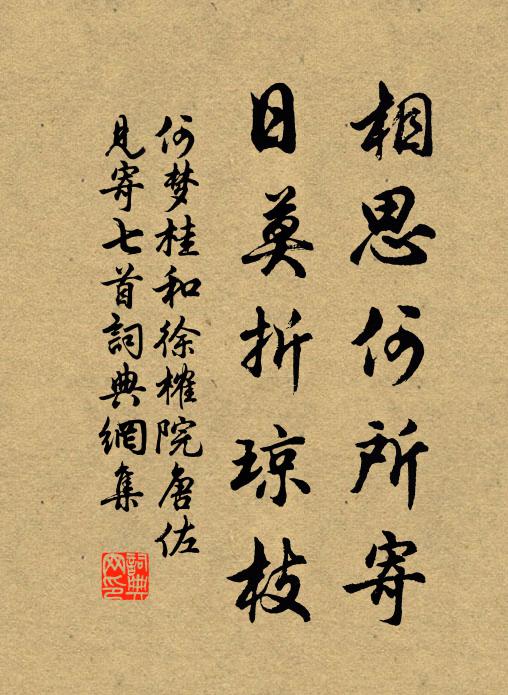 相思何所寄
日莫折琼枝
何梦桂和徐榷院唐佐
見寄七首詞典網集
詞典
网印